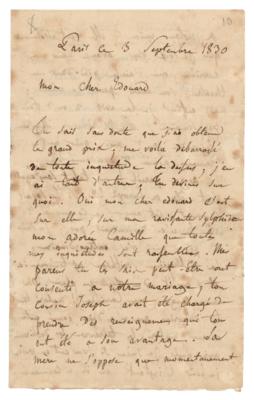 10
Paris ce 3 Septembre 1830
mon cher Edouard
Tu sais sans doute que j'ai obtenu
le grand prix; me voila débarassé
de toute inquietude la dessus; j'en
ai tant d'autres; tu devines sur
quoi. Oui mon cher edouard c'est
sur elle, sur ma ravissante sylphide
mon adorée Camille que toute
mes inquiétudes sont rassemblées. Mes
parens tu le sais peut être ont
consenti a notre mariage; ton
cousin Joseph avait été chargé de
prendre des renseignemens qui ont
été a son avantage. Sa
mère ne s'oppose que momentanement